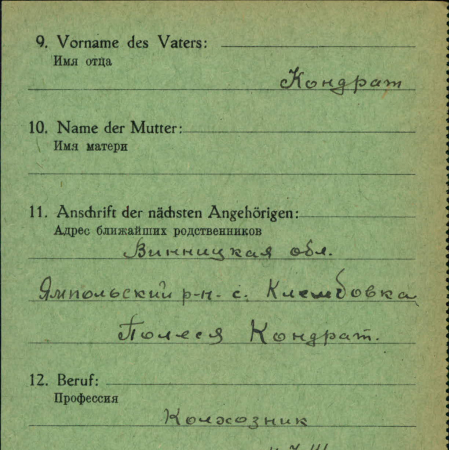 9. Vorname des Vaters:
Имя отца
Кондрат
10. Name der Mutter:
Имя матери
11. Anschrift der nächsten Angehörigen:
Адрес ближайших родственников
Винницкая обл.
Ямпольский р-н- с. Клембовка
Полеся Кондрат.
12. Beruf:
Профессия
Колхозник